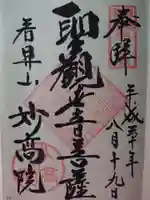 奉拝
平成三十年
八月十九日
聖観世音菩薩
若昇山
妙高院